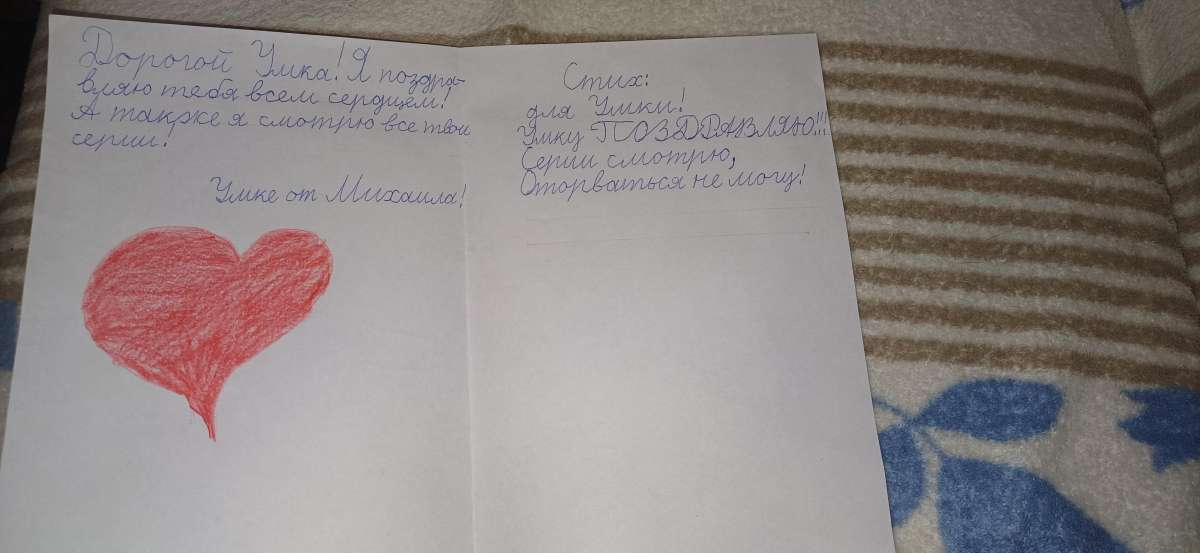 Дорогой Умка! Я поздра-
вляю тебя всем сердцем!
А также я смотрю все твои
серии!
Умке от Михаила!
Стих:
для Умки!
Умку ПОЗДРАВЛЯЮ!!!
Серии смотрю,
Оторваться не могу!